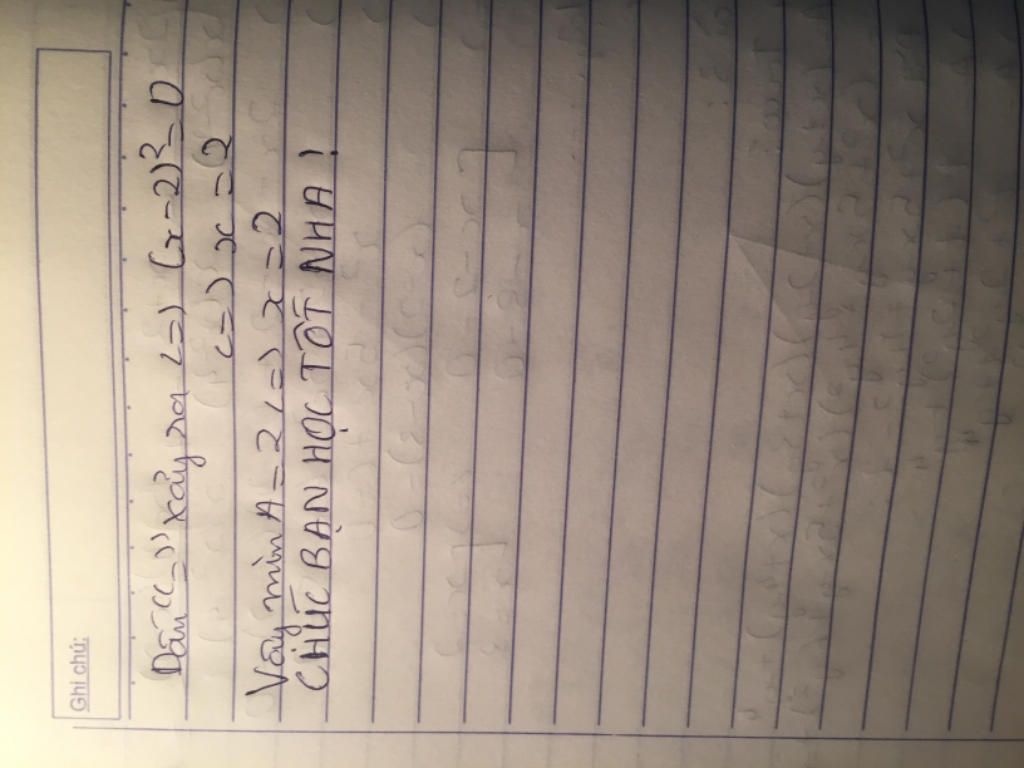 Ghi chú:
Dấu "=" xảy ra <=> (x-2)²=0
<=> x=2
Vậy min A=2 <=> x=2
CHÚC BẠN HỌC TỐT NHA!